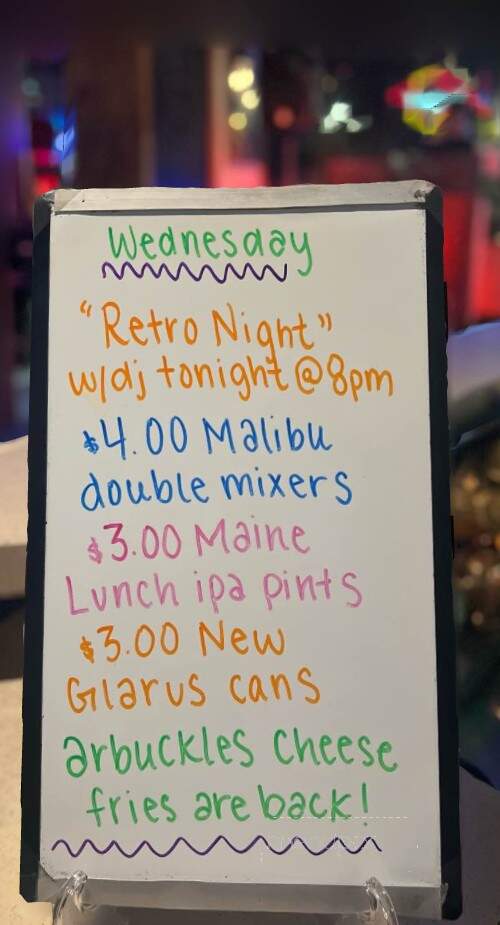 Wednesday
"Retro Night"
w/dj tonight @ 8pm
$4.00 Malibu
double mixers
$3.00 Maine
Lunch ipa pints
$3.00 New
Glarus cans
arbuckles cheese
fries are back!